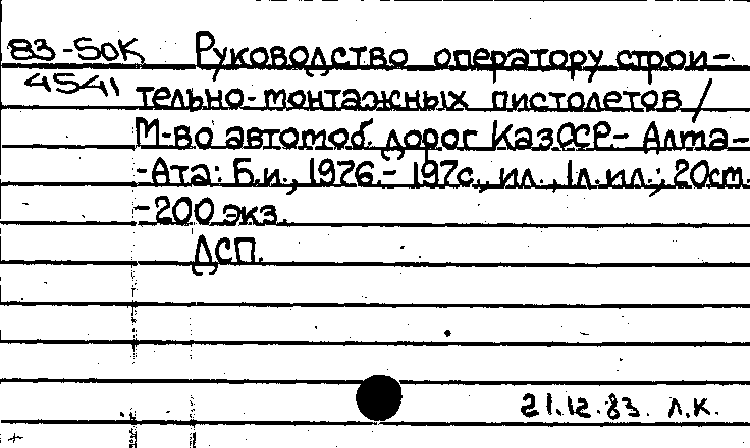 83-50К Руководство оператору строи-
4541 тельно-монтажных пистолетов /
М-во автомоб. дорог КазССР.- Алма-
-Ата: Б.и., 1976.- 197с., ил., 1л.ил.; 20см.
-200 экз.
ДСП.
21.12.83. Л.К.